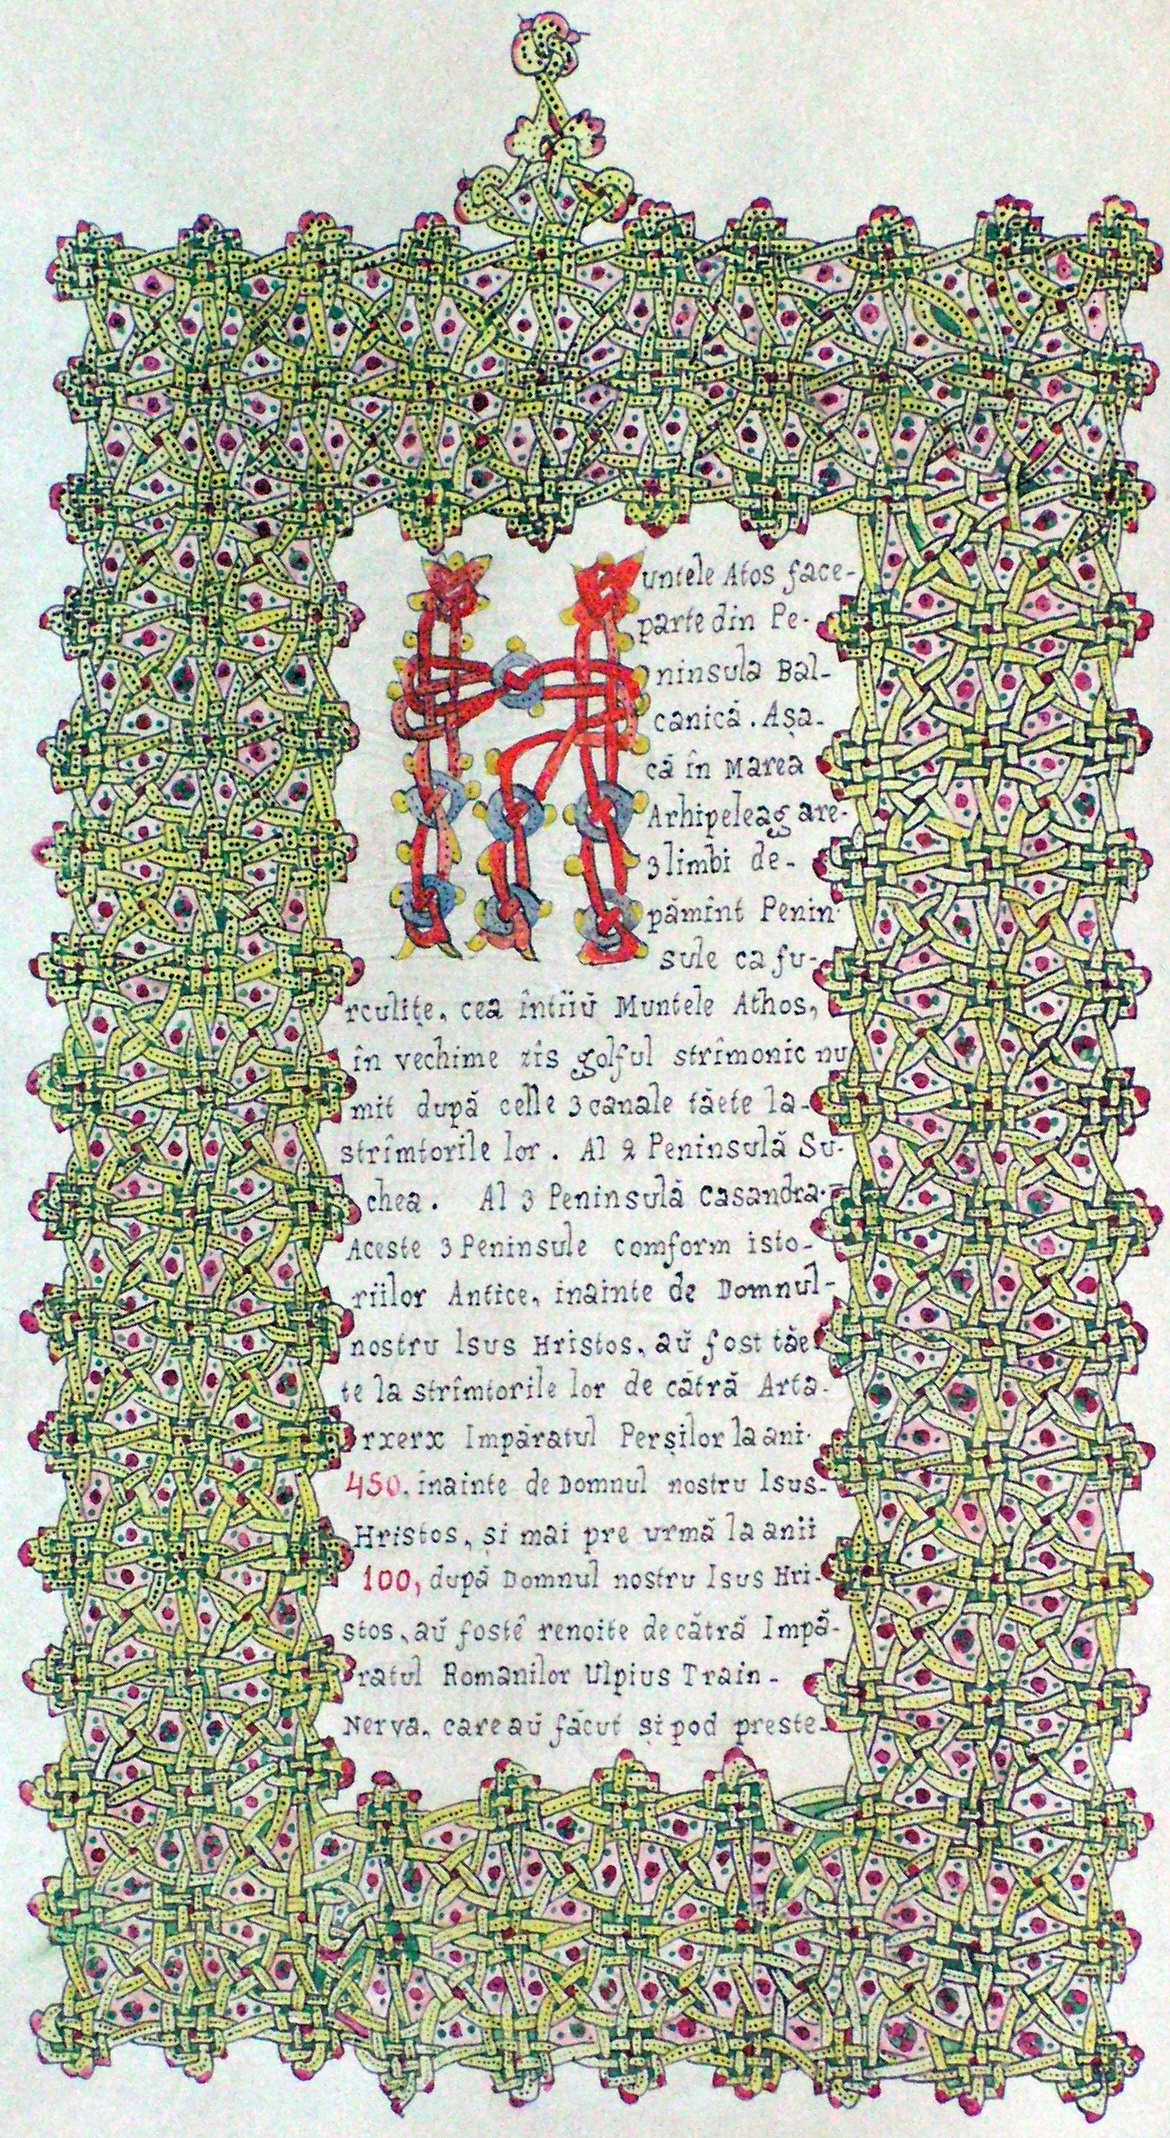 Muntele Atos face-
parte din Pe-
ninsula Bal-
canică. Așa-
că în Marea
Arhipeleag are-
3 limbi de-
pămînt Penin-
sule ca fu-
rculițe, cea întîiŭ Muntele Athos,
în vechime zîs golful strîmonic nu
mit după celle 3 canale tăete la-
strîmtorile lor. Al 2 Peninsulă Su-
chea. Al 3 Peninsulă Casandra.-
Aceste 3 Peninsule comform isto-
riilor Antice, inainte de Domnul-
nostru Isus Hristos, aŭ fost tăe
te la strîmtorile lor de cătră Arta-
rxerx Impăratul Perșilor la ani-
450, inainte de Domnul nostru Isus-
Hristos, și mai pre urmă la anii
100, după Domnul nostru Isus Hri-
stos, aŭ fostê renoite de cătră Impă-
ratul Romanilor Ulpius Train-
Nerva, care aŭ făcut și pod preste-